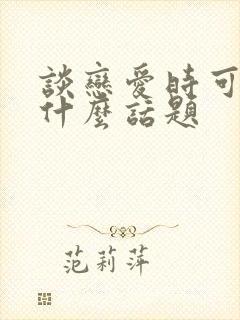 談戀愛時可
什麼話題
范莉萍